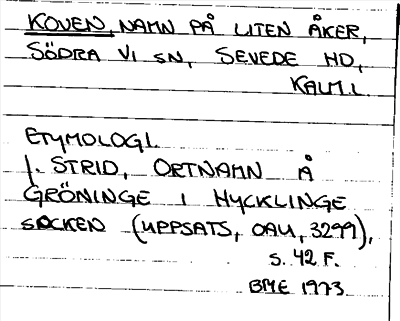 KOVEN, NAMN PÅ LITEN ÅKER,
SÖDRA VI SN, SEVEDE HD,
KALM.L.
ETYMOLOGI.
J. STRID, ORTNAMN Å
GRÖNINGE I HYCKLINGE
SOCKEN (UPPSATS, OAU, 3299),
S. 42 F.
BME 1973